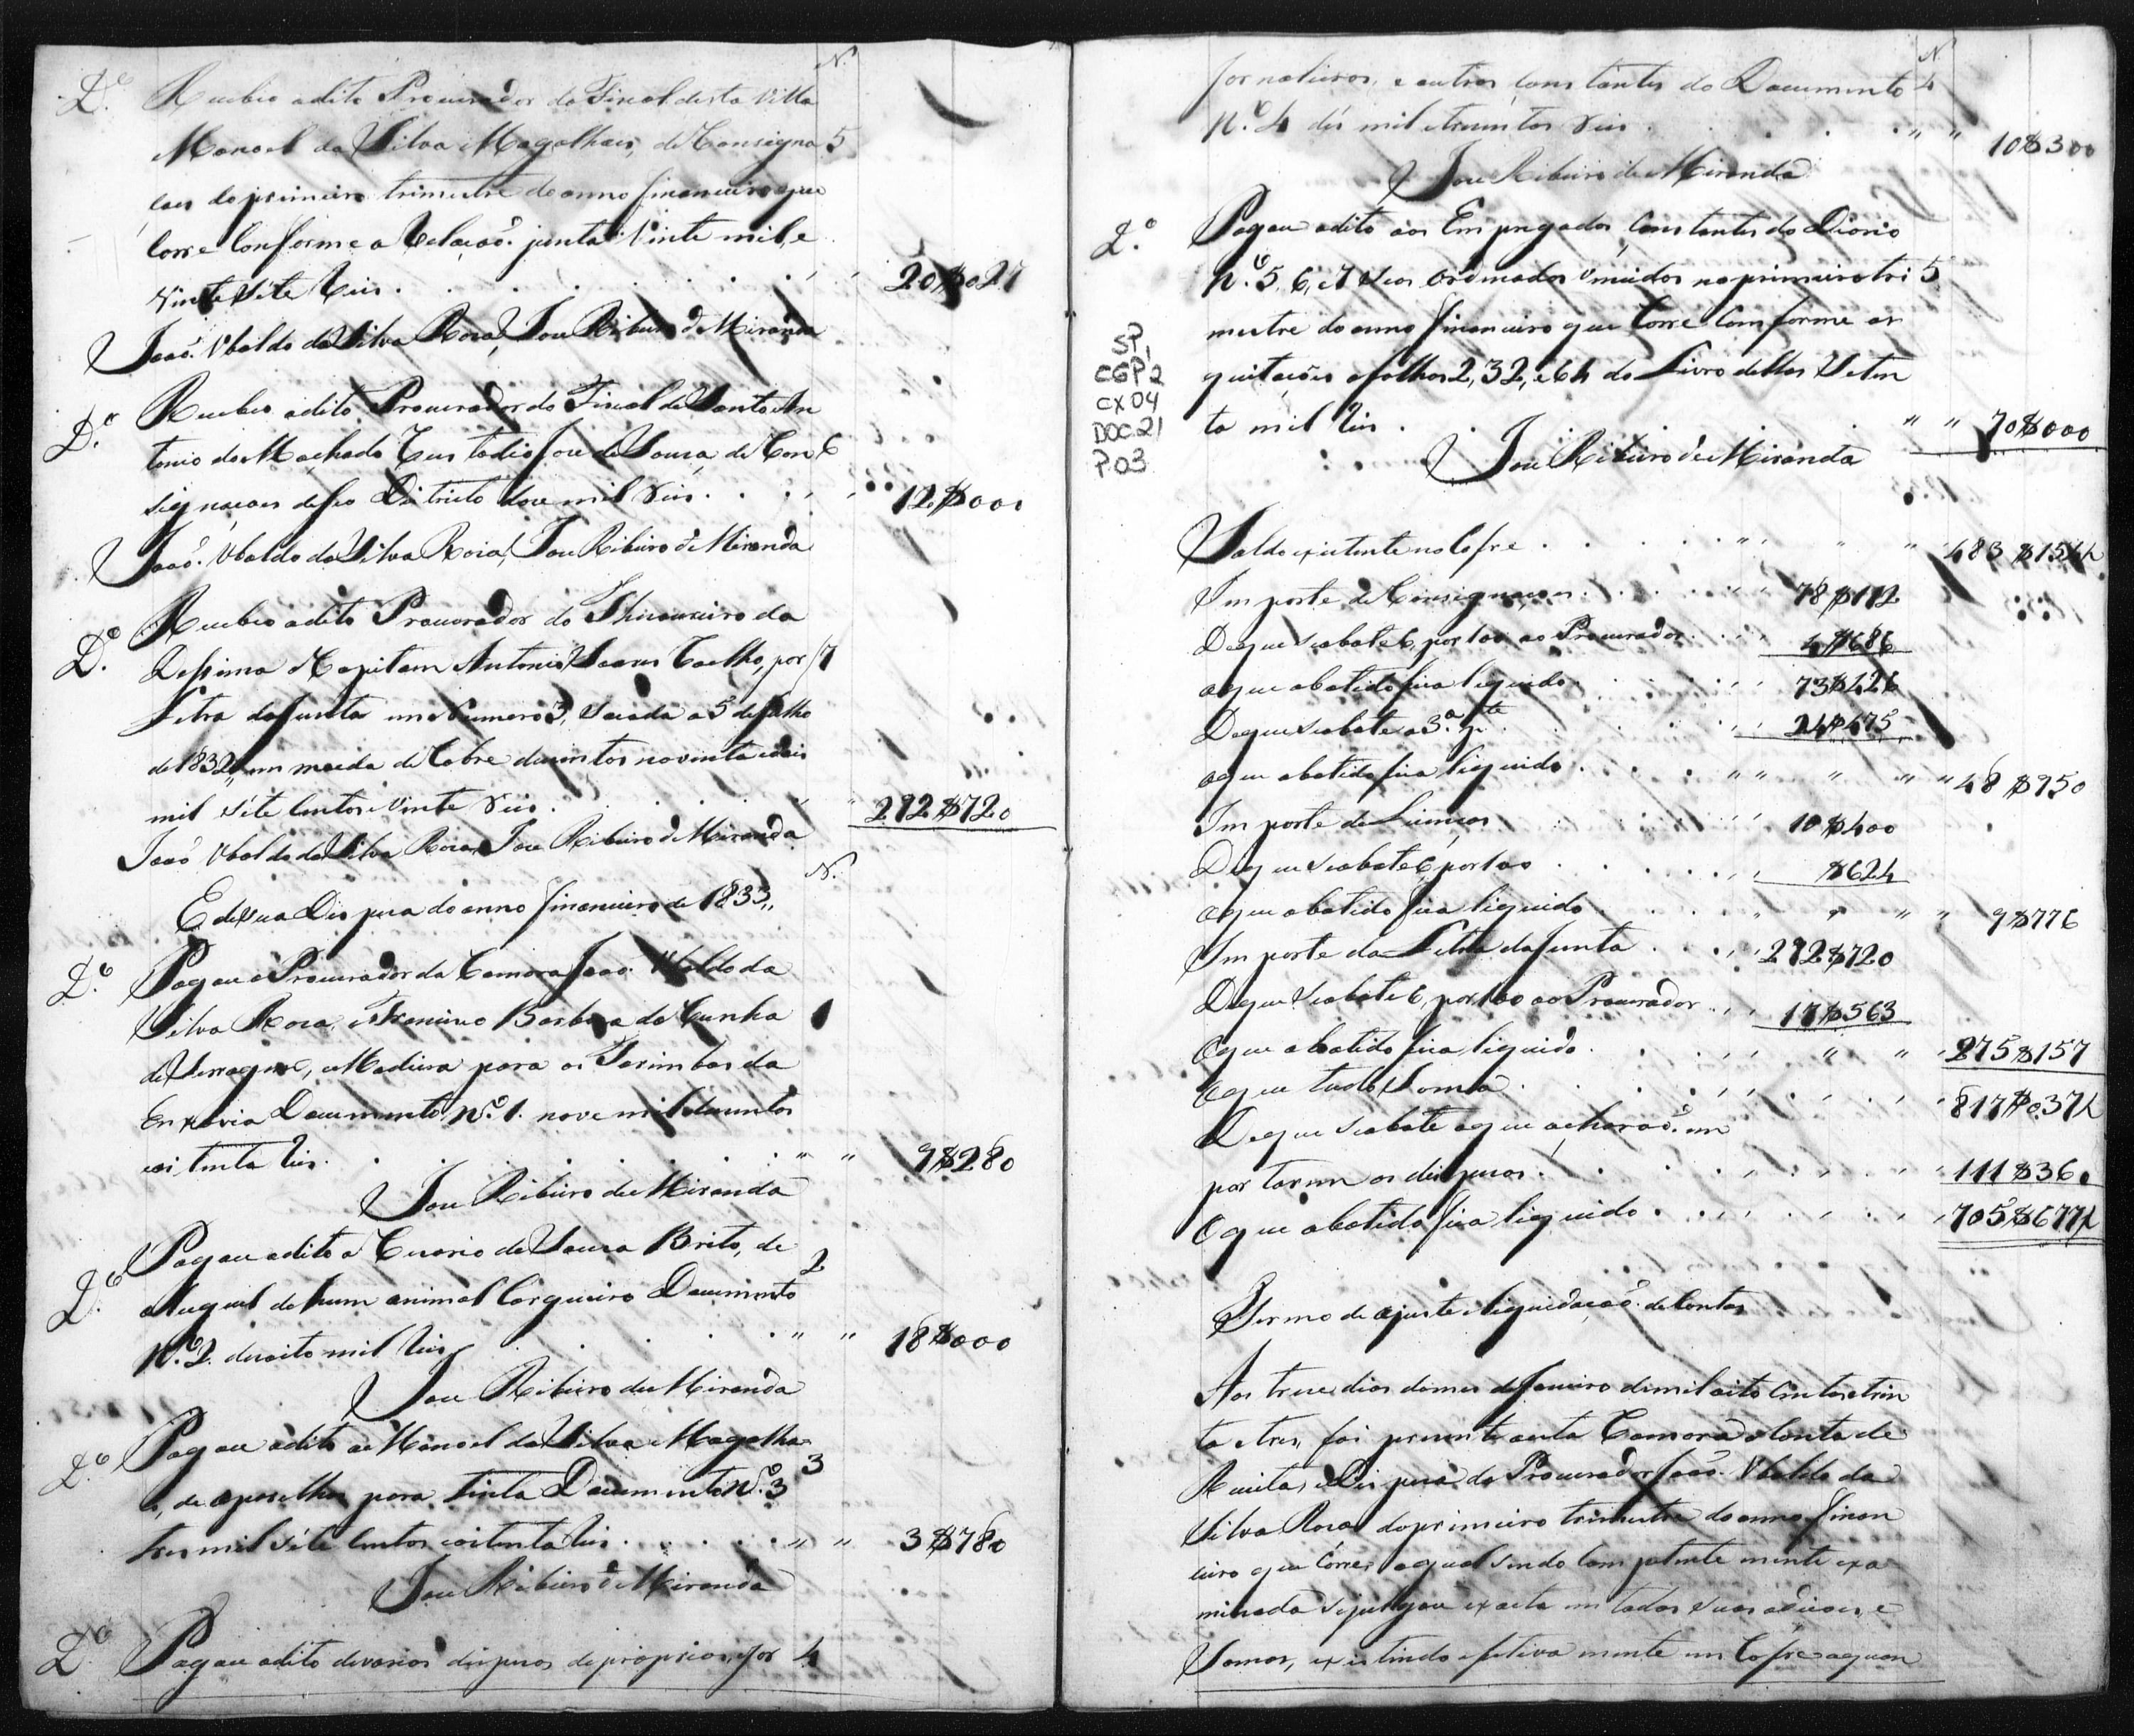 N.
D.º Recebeo a dito Procurador do Fiscal desta Villa
Manoel da Silva Magalhaes, de Consigna 5
coes do primeiro trimestre do anno financeiro que
corre conforme a Relaçaõ junta Vinte mil, e
Vinte Sete Reis . . . . . . . 20$027
Joaõ Ubaldo da Silva Roza, Joze Ribeiro de Miranda
D.º Recebeo a dito Procurador do Fiscal de Santo An
tonio do Machado Custodio Joze de Souza, de Con 6
signacoes de seo Districto doze mil Reis . . . 12$000
Joaõ Ubaldo da Silva Roza, Joze Ribeiro de Miranda
D.º Recebeo a dito Procurador do Thizoureiro da
Capitam Antonio Soares Coelho, por 7
Letra da Junta um Numero 3, Sacada a 5 de Julho
de 1832, em moeda de Cobre duzentos noventa e dois
mil Séte Centos e Vinte Reis . . . . . " 292$720
Joaõ Ubaldo da Silva Roza, Joze Ribeiro de Miranda
N.
E de sua Dispeza do anno financeiro de 1833,,
D.º Pagou o Procurador da Camara Joaõ Ubaldo da
Silva Roza, a Francisco Barboza da Cunha 1
de Ferragens, e Madeira para as Tarimbas da
Enxovia Documento N.º 1. nove mil duzentos
oitenta Reis . . . . . . . " " 9$280
Joze Ribeiro de Miranda
D.º Pagou a dito a Cezario de Souza Brito, de 2
aluguel de hum animal Cargueiro Documento
N.º 2. dezoito mil Reis . . . . . " " 18$000
Joze Ribeiro de Miranda
D.º Pagou a dito a Manoel da Silva Magalhae 3
s, de aparelhos para tinta Documento N.º 3
tres mil Séte Centos e oitenta Reis . . . . . " " 3$780
Joze Ribeiro de Miranda
D.º Pagou a dito de varias dispezas de proprios, e jor 4
N.
jornaleiros, e outros constantes do Documento 4
N.º 4 dés mil e trezentos Reis . . . . " " 10$300
Joze Ribeiro de Miranda
D.º Pagou a dito aos Empregados Constantes do Diario
N.º 5, 6, e 7 Seos Ordenados Vencidos no primeiro tri 5
mestre do anno financeiro que Corre Comforme as
quitações a folhas 2, 32, e 64 do Livro dellas Seten
ta mil Reis . . . . . " " 70$000
Joze Ribeiro de Miranda
SP,
CGP2
CX04
DOC.21
P.03
Saldo existente no Cofre . . . . . " " " 483$154
Importe de Consignacoes . . . . . " " 78$112
De que se abate 6, por 100 ao Procurador . . . 4$686
o que abatido fica liquido . . . . . 73$426
De que se abate a 3.ª p.te . . . . . 24$475
o que abatido fica liquido . . . . " " " " " 48$950
Importe de Licenças . . . . . 10$400
De que se abate 6, por 100 . . . . . $624
o que abatido fica liquido . . . . " " " " 9$776
Importe da Letra da Junta . . . . . 292$720
De que se abate 6, por 100 ao Procurador . . . 17$563
O que abatido fica liquido . . . . . " " 275$157
O que tudo Soma . . . . . 817$037
De que se abate o que acharaõ im
portarem as dispezas . . . . . 111$360
O que abatido fica liquido . . . . . 705$677
Termo de ajuste e liquidaçaõ de Contas
Aos treze dias do mes de Janeiro de mil oito Centos e trin
ta e tres, foi prezente a esta Camara a Conta de
Receita, e Dispeza do Procurador Joaõ Ubaldo da
Silva Roza do primeiro trimestre do anno finan
ceiro que Corre, a qual sendo Competente mente exa
minada se julgou exacta em todas suas adicoes, e
Somas, existindo efetiva mente em Cofre a quan